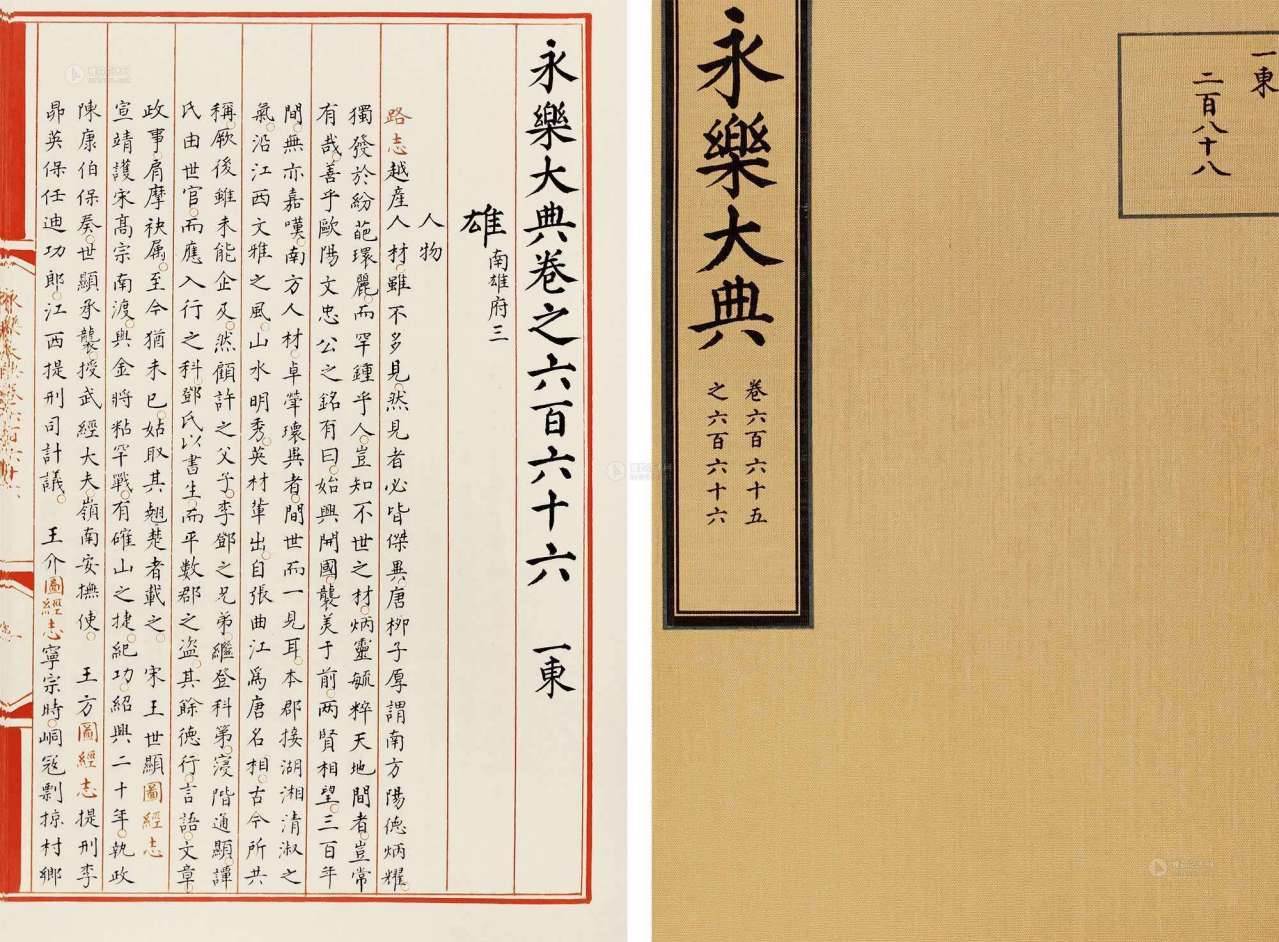 永樂大典卷之六百六十六　一東
雄　南雄府三
人物
路志越産人材。雖不多見。然見者必皆傑異。唐栁子厚謂南方陽德炳耀。
獨發於紛葩環麗。而罕鍾乎人。豈知不世之材。炳靈毓粹天地間者。豈常
有哉。善乎歐陽文忠公之銘有曰。始興開國。襲美于前。两賢相望。三百年
間。無亦嘉嘆。南方人材。卓犖瓌異者。間世而一見耳。本郡接湖湘清淑之
氣。沿江西文雅之風。山水明秀。英材軰出。自張曲江爲唐名相。古今所共
稱。厥後雖未能企及。然顧許之父子。李鄧之兄弟。繼登科第。寖階通顯。譚
氏由世官。而應入行之科。鄧氏以書生。而平數郡之盗。其餘德行。言語。文章。
政事。肩摩袂属。至今猶未巳。姑取其翹楚者載之。　宋王世顯圖經志
宣靖護宋髙宗南渡。與金將粘罕戰。有確山之捷。紀功。紹興二十年。執政
陳康伯保奏。世顯承襲。授武經大夫。嶺南安撫使。　王方圖經志提刑李
昴英保任迪功郎。江西提刑司計議。　王介圖經志寧宗時。峒寇剽掠村鄉
永樂大典
卷六百六十五
之六百六十六
一東
二百八十八